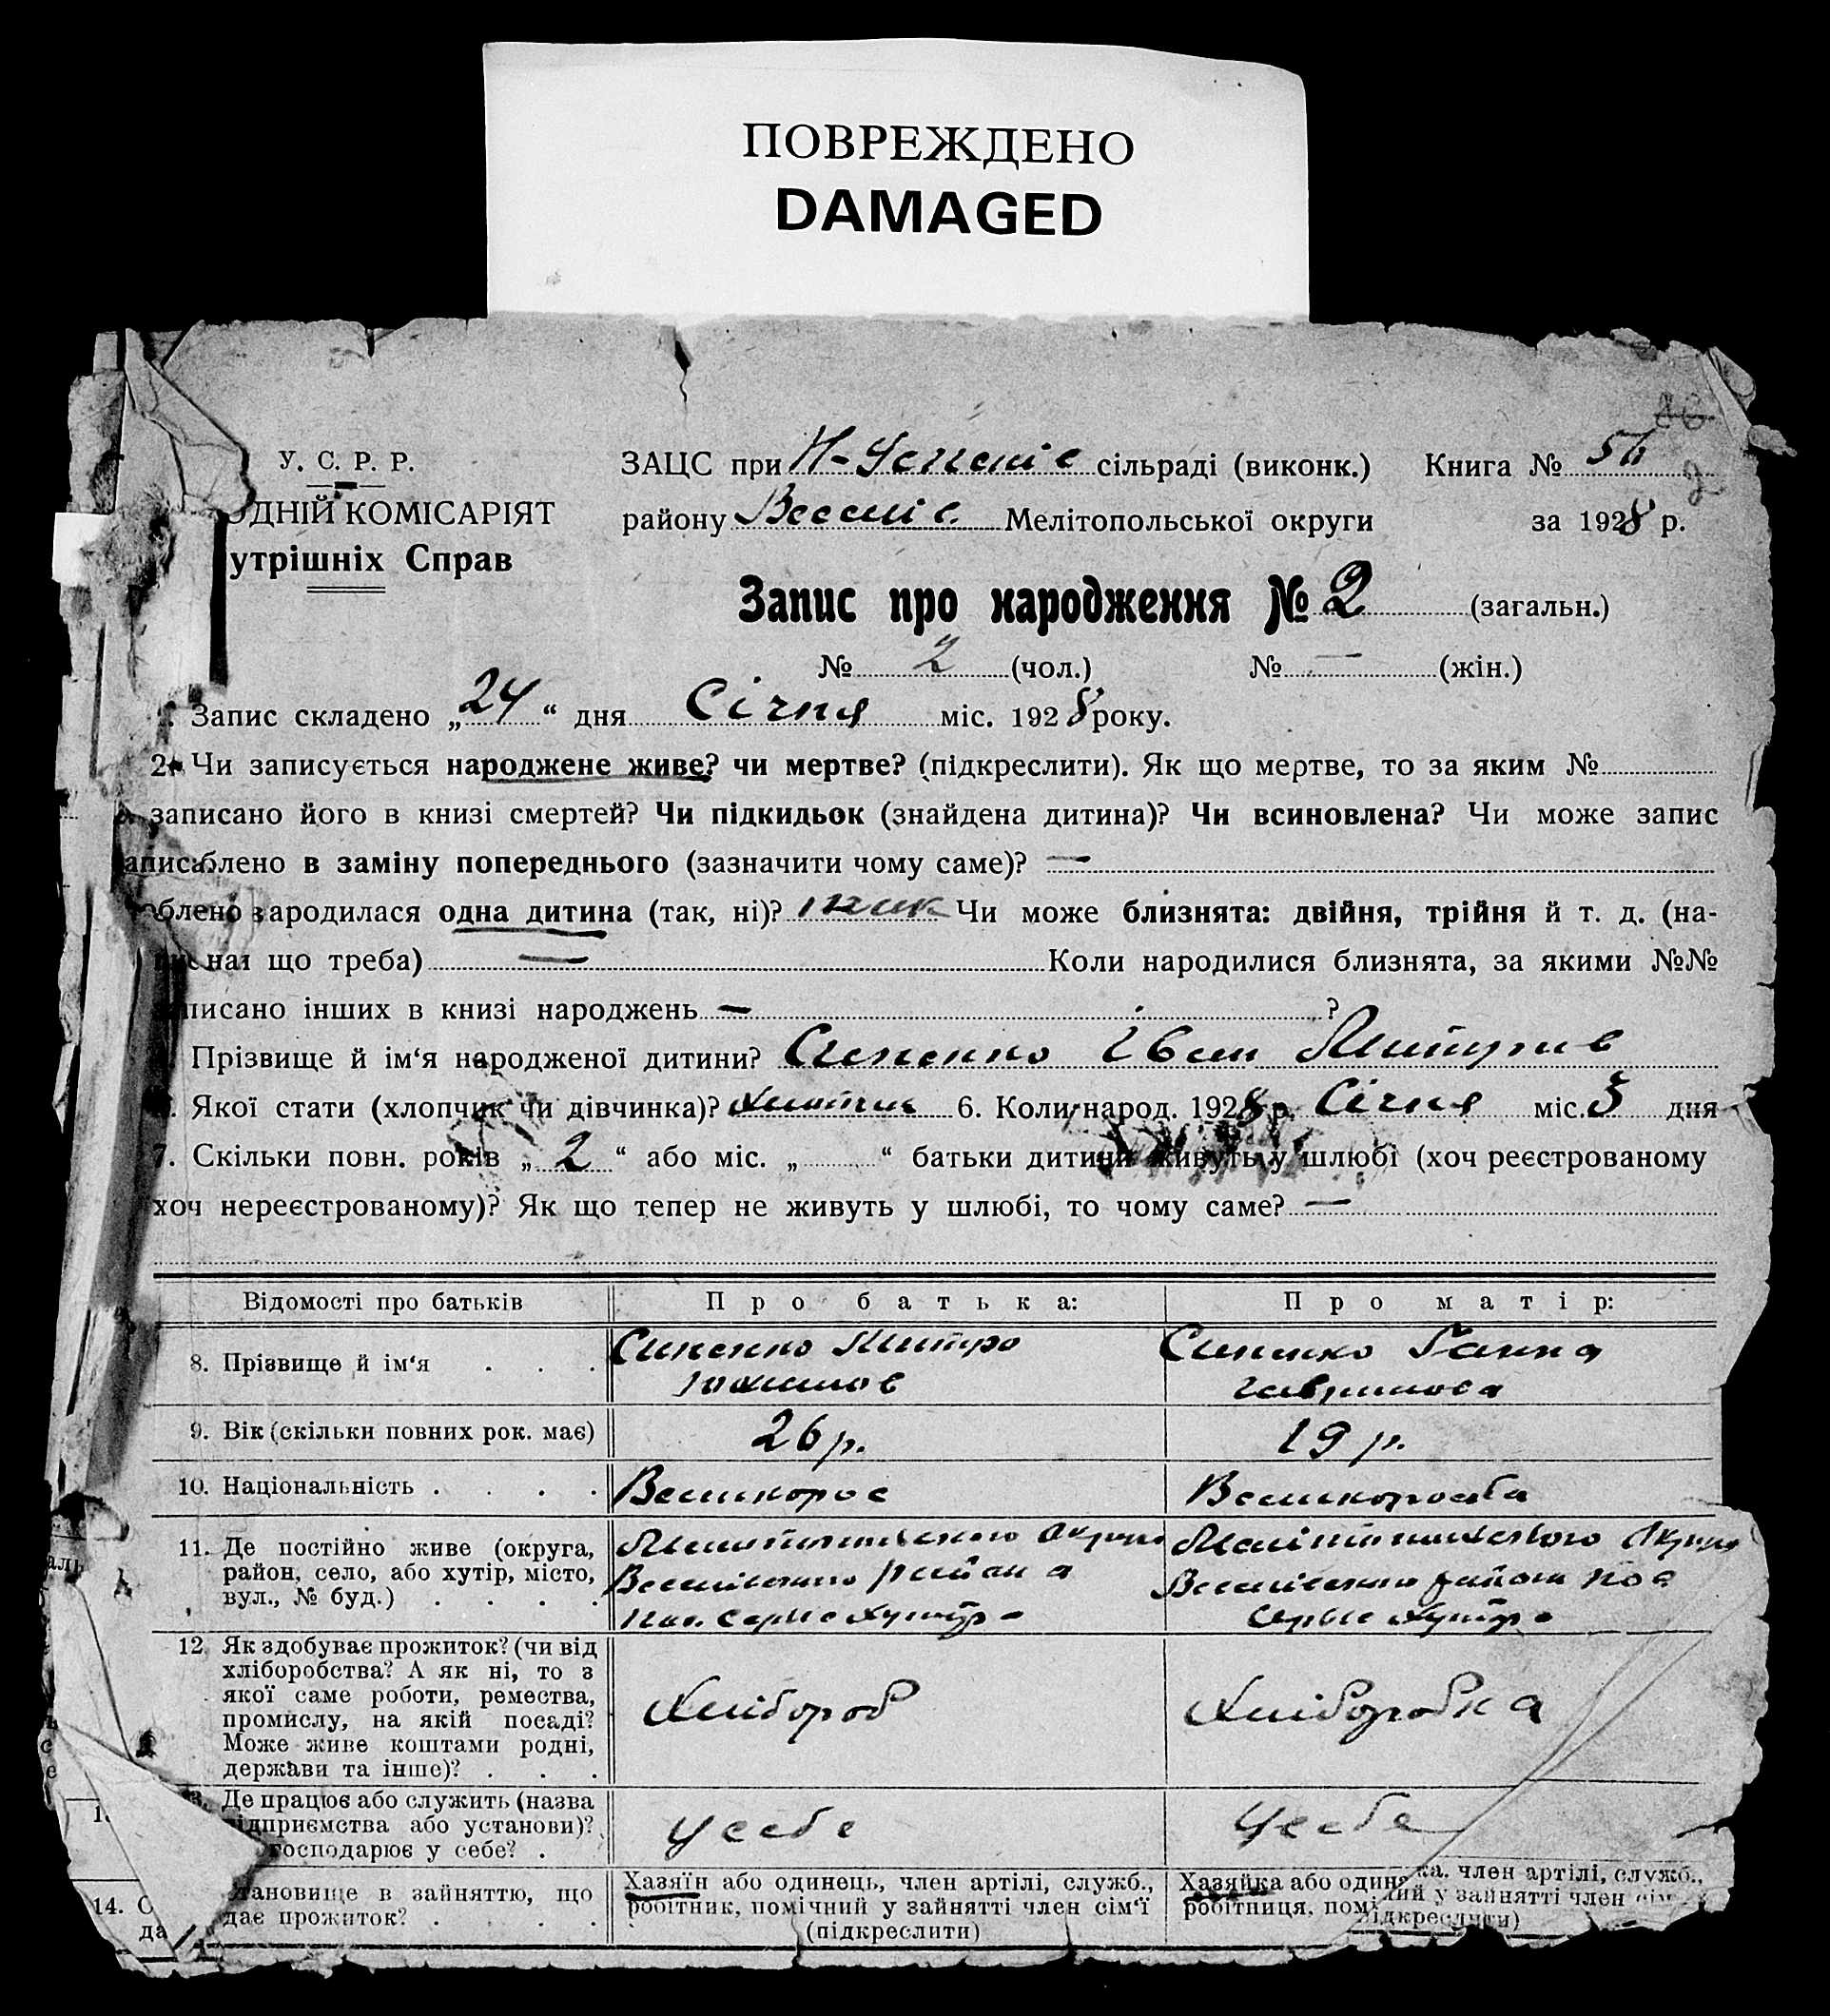 ПОВРЕЖДЕНО
DAMAGED
У. С. Р. Р.
ЗАЦС при Н-Успенів сільраді (виконк.) Книга №
ОДНІЙ КОМІСАРІЯТ
району Веселів. Мелітопольської округи за 1928 р.
утрішніх Справ
Запис про народження № 2 (загальн.)
№ 2 (чол.) № — (жін.)
Запис складено „24“ дня Січня міс. 1928 року.
2. Чи записується народжене живе? чи мертве? (підкреслити). Як що мертве, то за яким №
записано його в книзі смертей? Чи підкидьок (знайдена дитина)? Чи всиновлена? Чи може запис
блено в заміну попереднього (зазначити чому саме)? —
ародилася одна дитина (так, ні)? так Чи може близнята: двійня, трійня й т. д. (на-
що треба) — Коли народилися близнята, за якими №№
писано інших в книзі народжень — ?
Прізвище й ім‘я народженої дитини? Синенко Іван Митрив
Якої стати (хлопчик чи дівчинка)? хлопчик 6. Коли народ. 1928 р. Січня міс. 3 дня
7. Скільки повн. років „2“ або міс. „ “ батьки дитини живуть у шлюбі (хоч реєстрованому
хоч нереєстрованому)? Як що тепер не живуть у шлюбі, то чому саме? —
Відомості про батьків Про батька: Про матір:
8. Прізвище й ім‘я . . . Синенко Митро Синенко Ганна
Якимов Гаврилова
9. Вік (скільки повних рок. має) 26 р. 19 р.
10. Національність . . . . Великорос Великороска
11. Де постійно живе (округа, район, село, або хутір, місто, вул., № буд.) . . . .
Мелитопільского Округи
Веселівского району
Пос. Серые Хутора
Мелітопільского Округи
Веселівского району пос
Серые Хутора
12. Як здобуває прожиток? (чи від
хліборобства? А як ні, то з
якої саме роботи, ремества,
промислу, на якій посаді?
Може живе коштами родні,
держави та інше)? . . .
Хлібороб Хліборобка
Де працює або служить (назва
ідприємства або установи)?
господарює у себе? .
У себе У себе
14. тановище в зайняттю, що
дає прожиток? . . . .
Хазяїн або одинець, член артілі, служб.,
робітник, помічний у зайнятті член сім‘ї
(підкреслити)
Хазяйка або один ка. член артілі, служб.,
робітниця, помі ний у зайнятті член
ідкреслити)